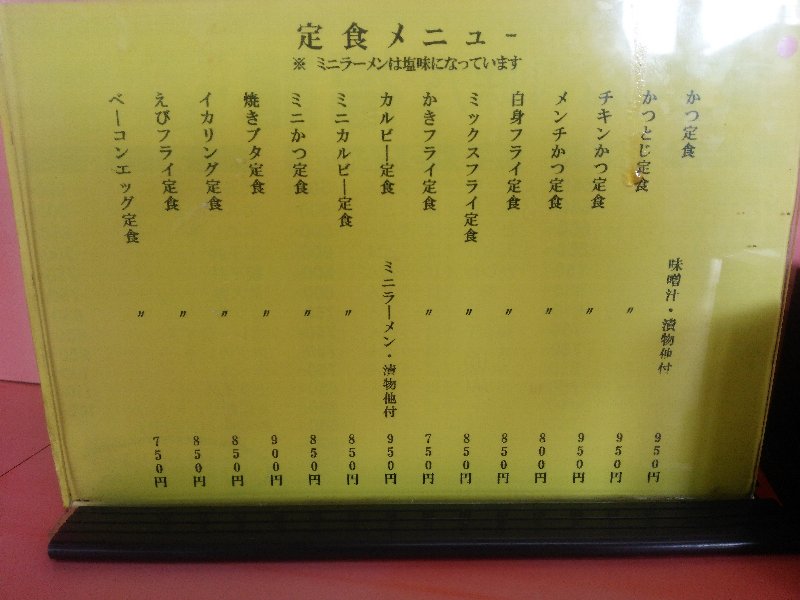 定食メニュー
※ ミニラーメンは塩味になっています
かつ定食 味噌汁・漬物他付 950円
かつとじ定食 〃 950円
チキンかつ定食 〃 950円
メンチかつ定食 〃 800円
白身フライ定食 〃 850円
ミックスフライ定食 〃 850円
かきフライ定食 〃 750円
カルビー定食 ミニラーメン・漬物他付 950円
ミニカルビー定食 〃 850円
ミニかつ定食 〃 850円
焼きブタ定食 〃 900円
イカリング定食 〃 850円
えびフライ定食 〃 850円
ベーコンエッグ定食 〃 750円